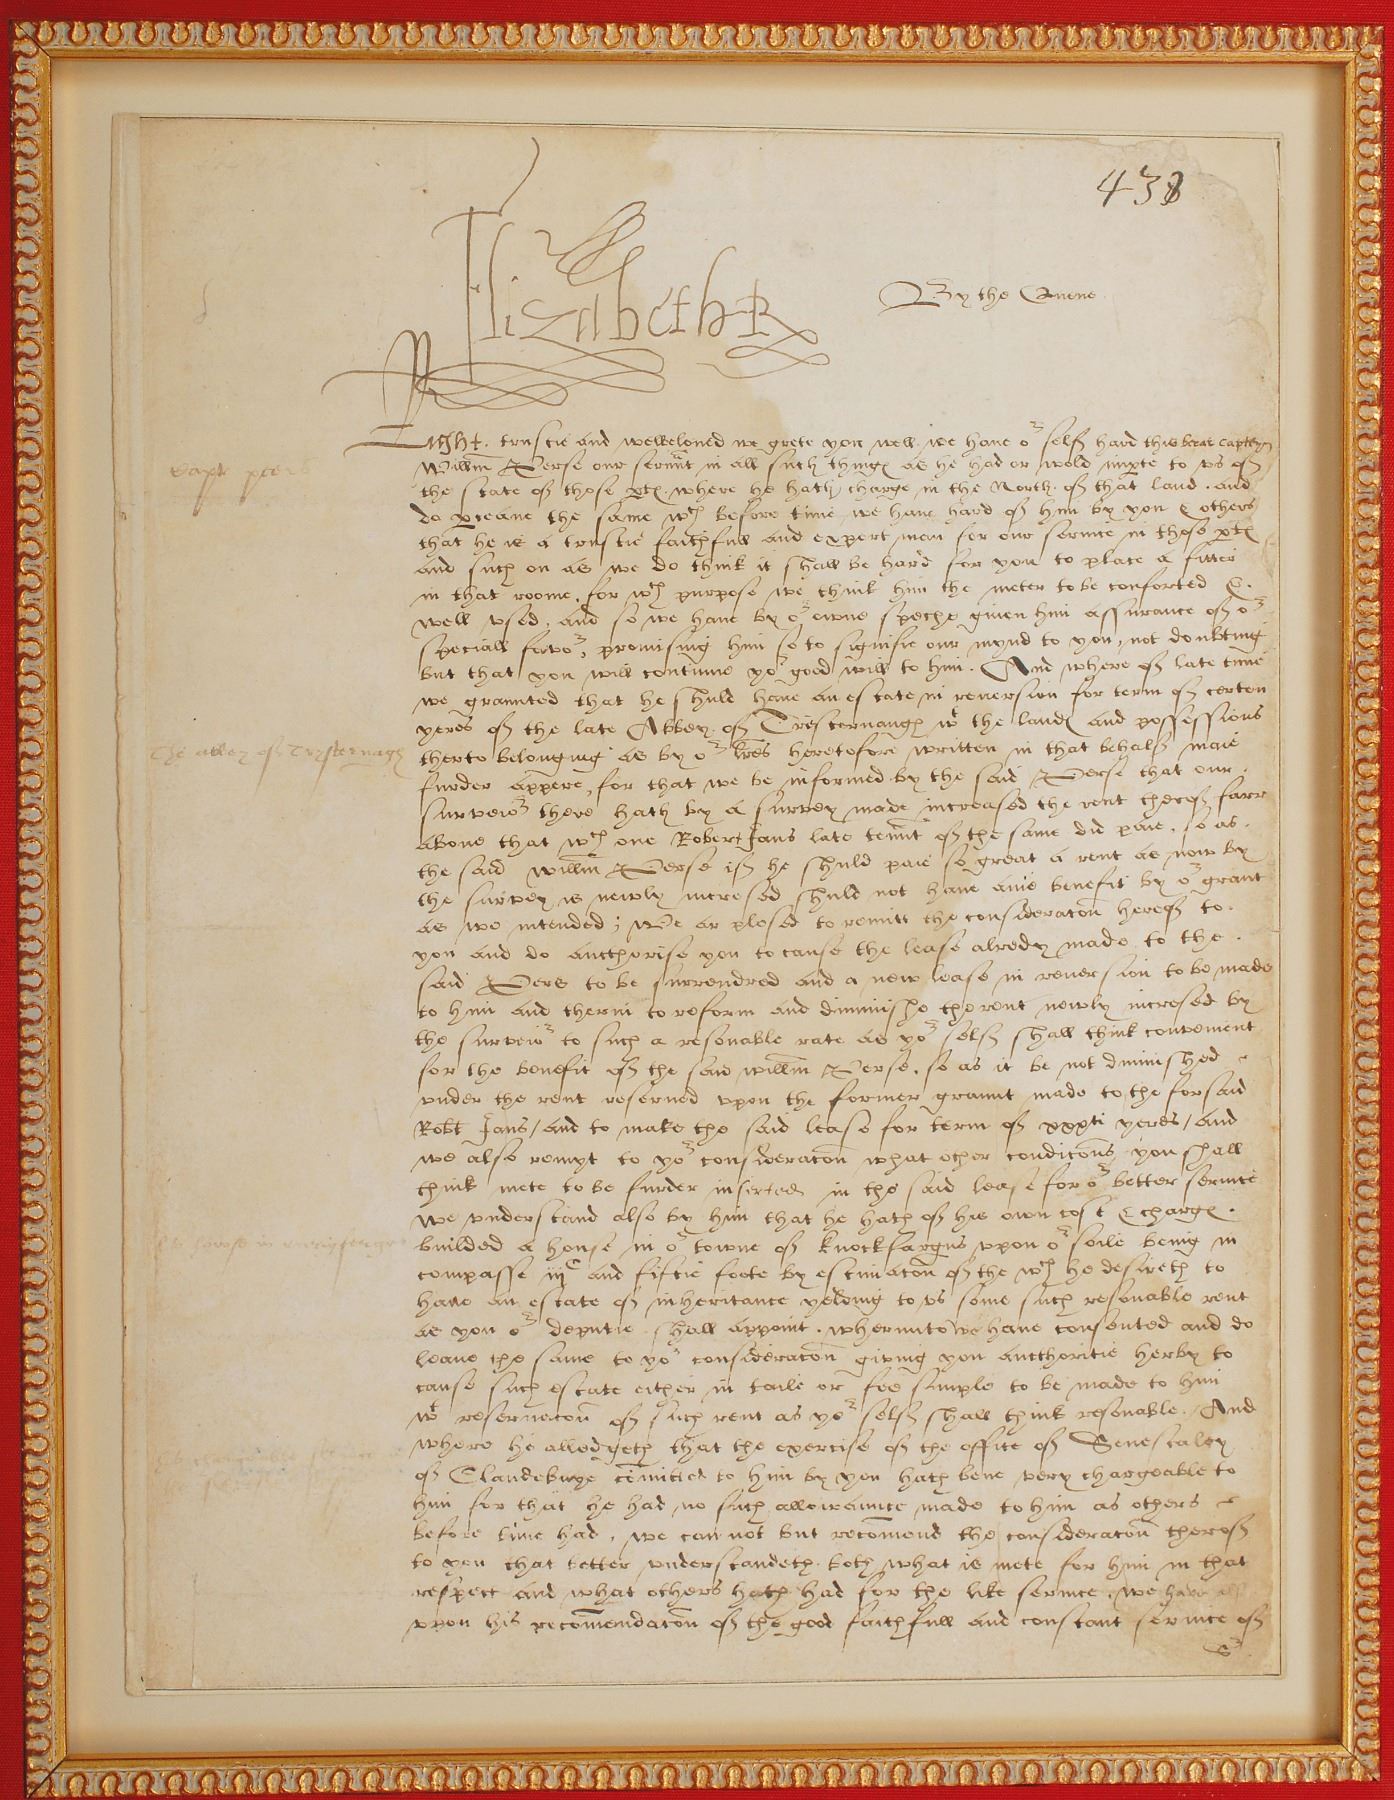 438
Elizabeth R
By the Quene
Right trustie and welbeloued we grete you well. we haue or self hard this berar Captayn
Capt peers
Willm Perse our serunt in all such things as he had or wold impte to vs of
the state of those pts where he hath charge in the North of that land. and
do the same wch before time we haue hard of him by you & others
that he is a trustie faithfull and expert man for our seruice in those pts
and such on as we do think it shall be hard for you to place a fitter
in that roome, for wch purpose we think him the meter to be conforted &
well vsed, and so we haue by or owne speche giuen him assurance of or
speciall favor, promising him so to signifie our mynd to you, not doubting
but that you will contunue yor good will to him. And where of late time
we graunted that he shuld haue an estate in reuersion for term of certen
yeres of the late Abbey of Tristernaugh wt the lands and possessions
The abbey of Trysternagh
therto belonging as by or lres heretofore written in that behalf maie
furder appere, for that we be informed by the said Perse that our
surveior there hath by a survey made increased the rent therof farr
aboue that wch one Robert Jans late tennt of the same did paie, so as
the said willm Perse if he shuld paie so great a rent as now by
the survey is newly incresed shuld not haue anie benefit by or grant
as we intended; We ar plesed to remitt the consideracon herof to
you and do aucthorise you to cause the lease alredy made to the
said Pers to be surrendred and a new lease in reuersion to be made
to him and therin to reform and diminishe the rent newly incresed by
the surveior to such a resonable rate as yor self shall think conuenient
for the benefit of the said willm Perse, so as it be not diminished
vnder the rent reserued vpon the former graunt made to the forsaid
Robt Jans / and to make the said lease for term of xxxti yeres / and
we also remyt to yor consideracon what other condicons you shall
think mete to be furder inserted in the said lease for or better seruice
We vnderstand also by him that he hath of his own cost & charges
builded a house in or towne of knockfargus vpon or soile being in
compasse iijc and fiftie foote by estimacon of the wch he desireth to
haue an estate of inheritance yelding to vs some such resonable rent
as you or deputie shall appoint. wherunto we haue consented and do
leaue the same to yor consideracon giuing you aucthoritie herby to
cause such estate either in taile or fee simple to be made to him
wt reseruacon of such rent as yor self shall think resonable. And
where he alledgeth that the exercise of the office of Senescalcy
of Clandebuye comitted to him by you hath bene very chargeable to
him for that he had no such allowaunce made to him as others
before time had, we can not but recomend the consideracon therof
to you that better vnderstandeth both what is mete for him in that
respect and what others hath had for the like seruice. we haue
vpon his recomendacon of the good faithfull and constant seruice of